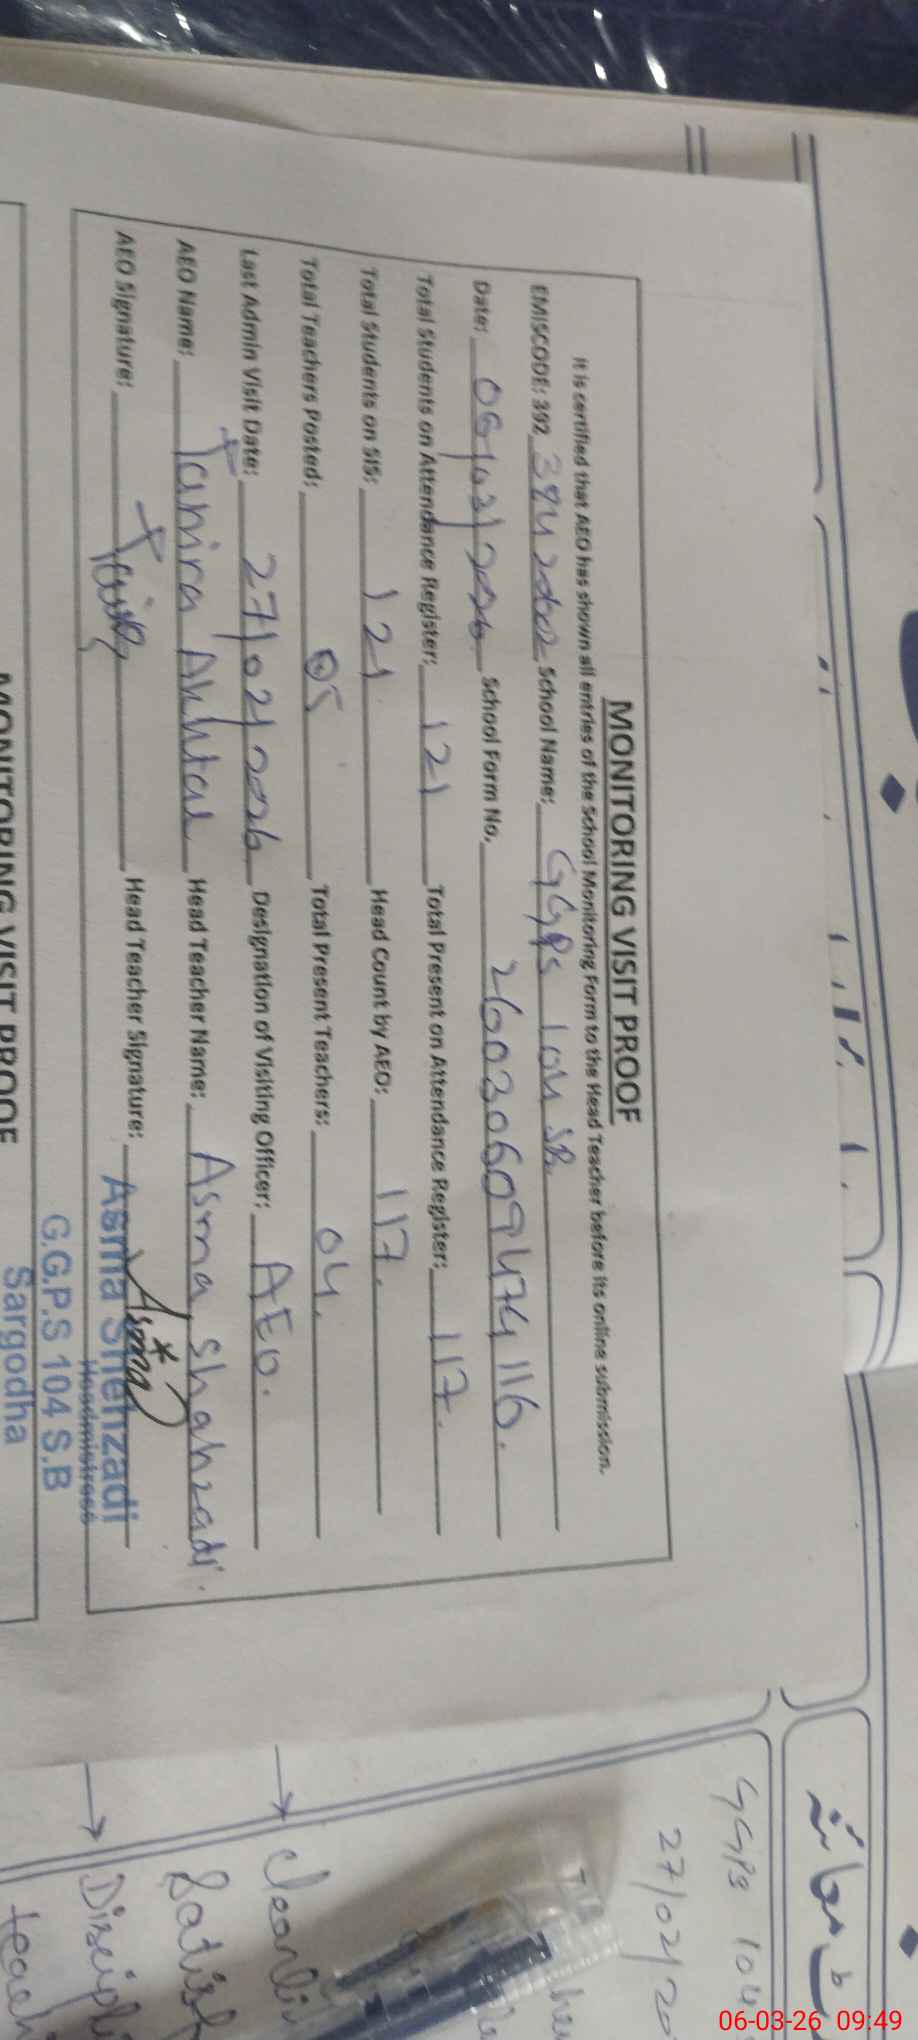 MONITORING VISIT PROOF
It is certified that AEO has shown all entries of the School Monitoring Form to the Head Teacher before its online submission.
EMISCODE: 392 38420002 School Name: GGPS 104 SB
Date: 06/03/2026 School Form No. 26030609474116.
Total Students on Attendance Register: 121 Total Present on Attendance Register: 117.
Total Students on SIS: 121 Head Count by AEO: 117.
Total Teachers Posted: 05 Total Present Teachers: 04.
Last Admin Visit Date: 27/02/2026 Designation of Visiting Officer: AEO.
AEO Name: Tahira Akhtar Head Teacher Name: Asma Shahzadi.
AEO Signature: Head Teacher Signature: Asma
Asma Shehzadi
Headmistress
G.G.P.S 104 S.B
Sargodha
MONITORING VISIT PROOF
معائنہ
GGPS 104
27/02/20
→
→ Discipli
teach
06-03-26 09:49